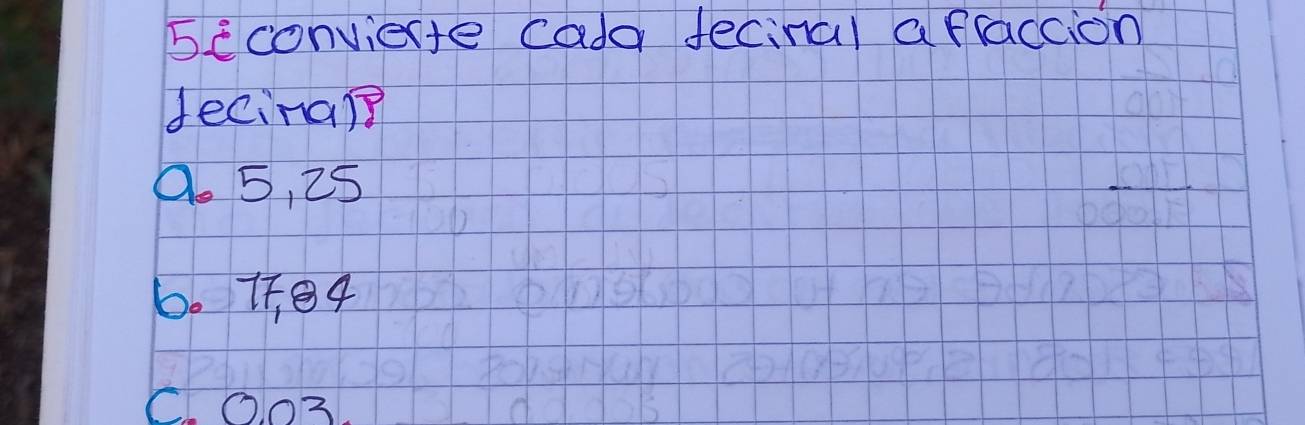 5¿convierte cada decimal a fracción
decimal?
a. 5,25
b. 17,84
c. 0,03.